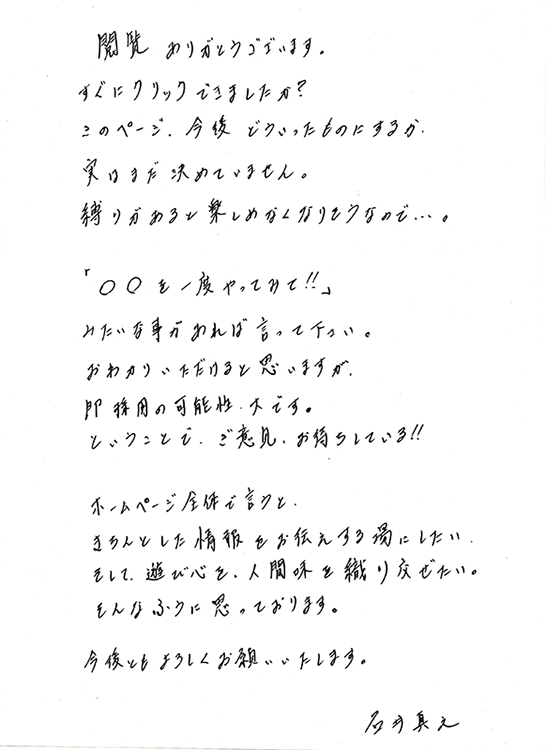 閲覧 ありがとうございます。
すぐにクリックできましたか?
このページ、今後 どういったものにするか、
実はまだ 決めていません。
縛りがあると楽しめなくなりそうなので…。
「〇〇を一度やってみて!!」
みたいな事があれば言って下さい。
おわかりいただけると思いますが、
即採用の可能性、大です。
ということで、ご意見、お待ちしている!!
ホームページ全体で言うと、
きちんとした情報をお伝えする場にしたい、
そして、遊び心を、人間味を織り交ぜたい。
そんなふうに思っております。
今後ともよろしくお願いいたします。
石井真之